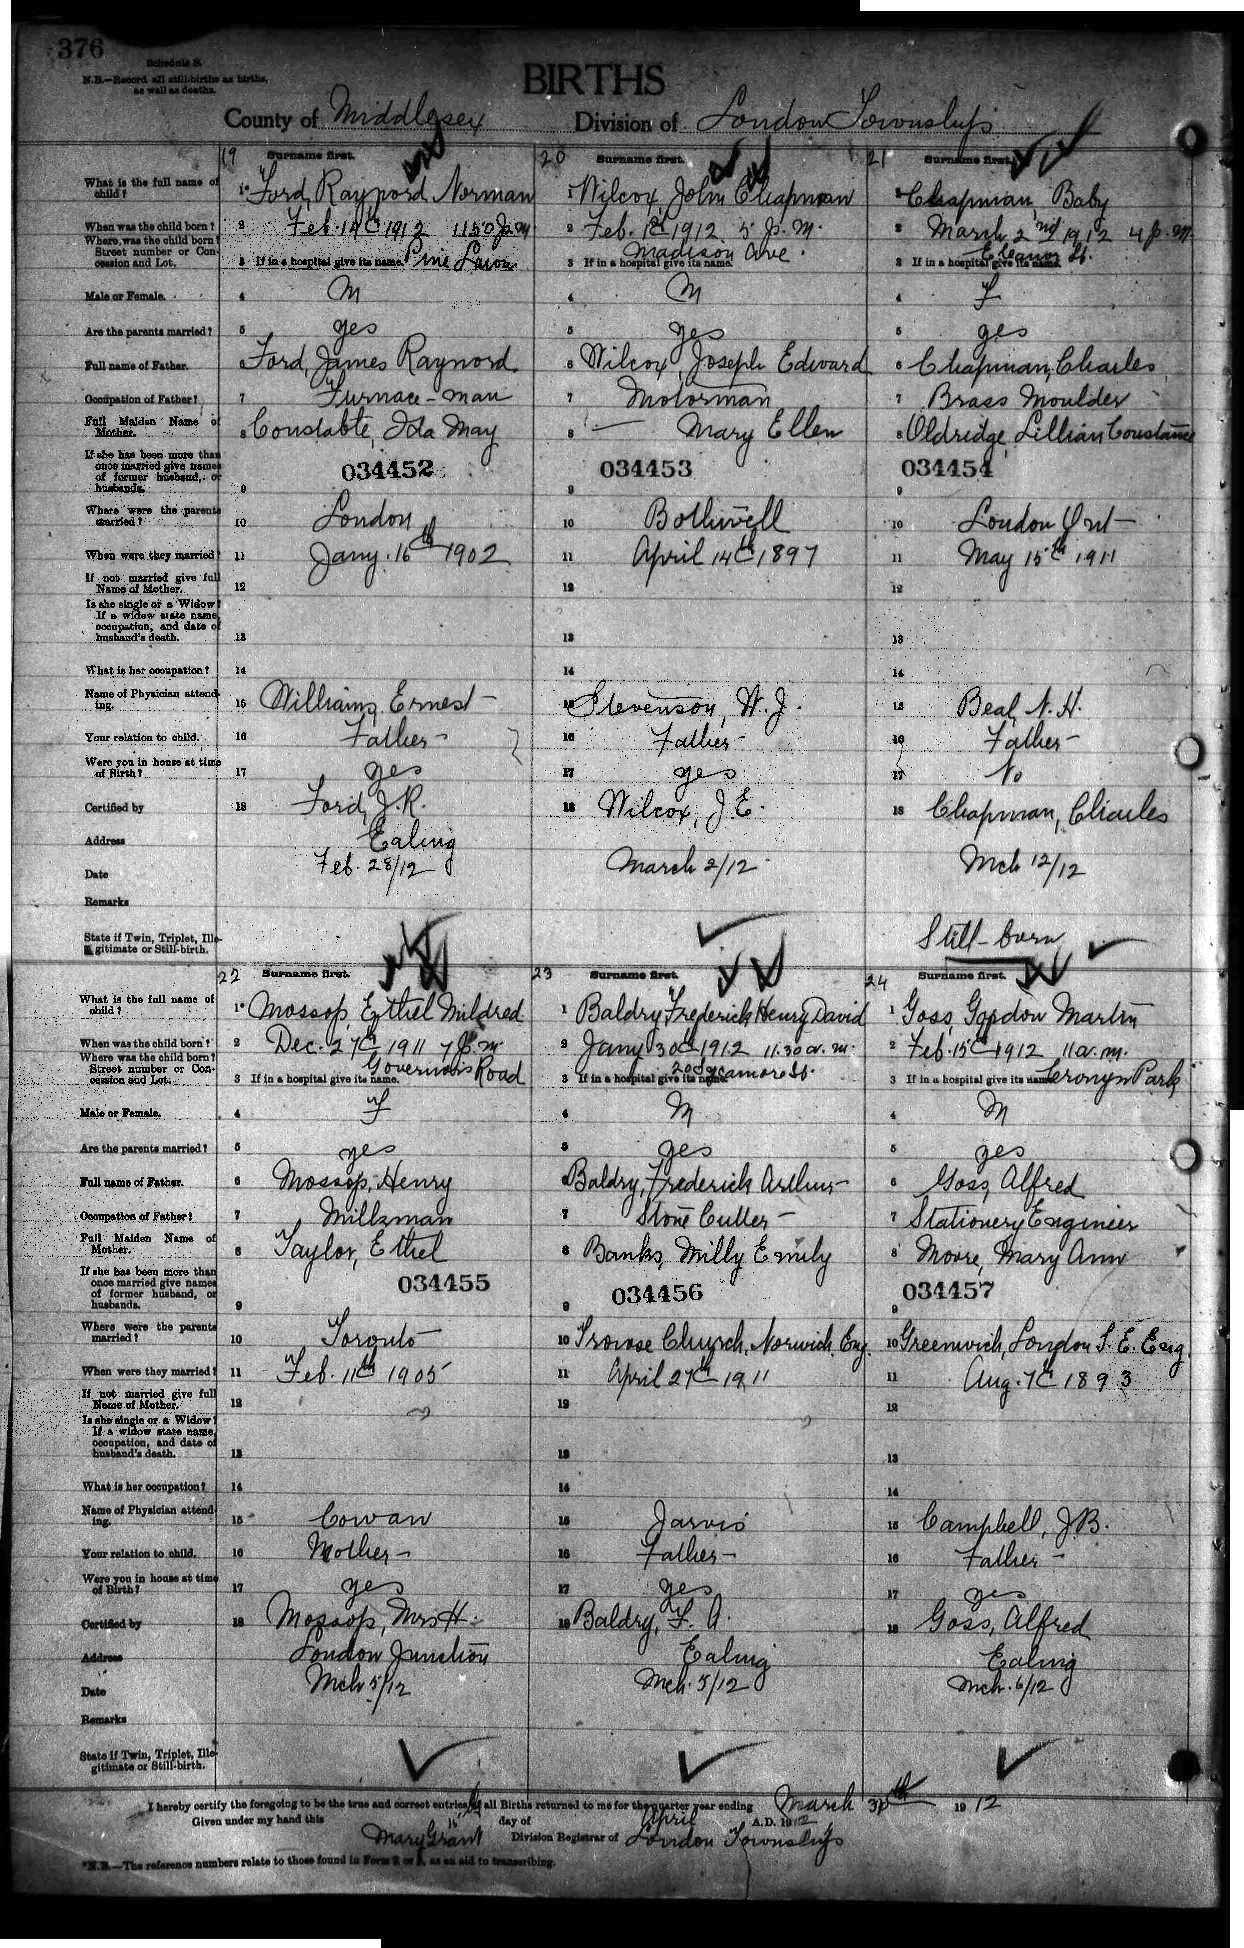 376
Schedule B.
N.B.—Record all still-births as births, as well as deaths.
BIRTHS
County of Middlesex Division of London Township
19 Surname first. 20 Surname first. 21 Surname first.
What is the full name of child? 1* Ford, Raynord Norman 1 Wilcox, John Chapman 1 Chapman, Baby
When was the child born? 2 Feb. 14th 1912 11 50 p.m 2 Feb. 1st 1912 5 p.m. 2 March 2nd 1912 4 p.m.
Where was the child born? Street number or Concession and Lot. 3 If in a hospital give its name. Pine 3 If in a hospital give its name. Madison Ave. 3 If in a hospital give its name. Eleanor St.
Male or Female. 4 M 4 M 4 F
Are the parents married? 5 yes 5 yes 5 yes
Full name of Father. 6 Ford, James Raynord 6 Wilcox, Joseph Edward 6 Chapman, Charles
Occupation of Father? 7 Furnace-man 7 Motorman 7 Brass Moulder
Full Maiden Name of Mother. 8 Constable, Ida May 8 — Mary Ellen 8 Oldridge, Lillian Constance
If she has been more than once married give names of former husband, or husbands. 9 034452 9 034453 9 034454
Where were the parents married? 10 London 10 Bothwell 10 London Ont
When were they married? 11 Jany. 15th 1902 11 April 14th 1897 11 May 15th 1911
If not married give full Name of Mother. 12 12 12
Is she single or a Widow? If a widow state name, occupation, and date of husband's death. 13 13 13
What is her occupation? 14 14 14
Name of Physician attending. 15 Williams, Ernest 15 Stevenson, W. J. 15 Beal, N. H.
Your relation to child. 16 Father 16 Father 16 Father
Were you in house at time of Birth? 17 yes 17 yes 17 No
Certified by 18 Ford, J. R. 18 Wilcox, J. E. 18 Chapman, Charles
Address Ealing
Date Feb. 28/12 March 2/12 Mch 12/12
Remarks
State if Twin, Triplet, Illegitimate or Still-birth. Still-born
22 Surname first. 23 Surname first. 24 Surname first.
What is the full name of child? 1* Mossop, Ethel Mildred 1 Baldry, Frederick Henry David 1 Goss, Gordon Martin
When was the child born? 2 Dec. 27th 1911 7 p.m. 2 Jany 30th 1912 11.30 a.m. 2 Feb. 15th 1912 11 a.m.
Where was the child born? Street number or Concession and Lot. 3 If in a hospital give its name. Governors Road 3 If in a hospital give its name. 20 Sycamore St. 3 If in a hospital give its name. Park
Male or Female. 4 F 4 M 4 M
Are the parents married? 5 yes 5 yes 5 yes
Full name of Father. 6 Mossop, Henry 6 Baldry, Frederick Arthur 6 Goss, Alfred
Occupation of Father? 7 Milkman 7 Stone Cutter 7 Stationery Engineer
Full Maiden Name of Mother. 8 Taylor, Ethel 8 Banks, Milly Emily 8 Moore, Mary Ann
If she has been more than once married give names of former husband, or husbands. 9 034455 9 034456 9 034457
Where were the parents married? 10 Toronto 10 Trowse Church, Norwich, Eng. 10 Greenwich, London S. E. Eng.
When were they married? 11 Feb. 11th 1905 11 April 27th 1911 11 Aug. 7th 1893
If not married give full Name of Mother. 12 12 12
Is she single or a Widow? If a widow state name, occupation, and date of husband's death. 13 13 13
What is her occupation? 14 14 14
Name of Physician attending. 15 Cowan 15 Jarvis 15 Campbell, J.B.
Your relation to child. 16 Mother 16 Father 16 Father
Were you in house at time of Birth? 17 yes 17 yes 17 yes
Certified by 18 Mossop, Mrs H. 18 Baldry, F. A. 18 Goss, Alfred
Address London Junction Ealing Ealing
Date Mch 5/12 Mch. 5/12 Mch. 6/12
Remarks
State if Twin, Triplet, Illegitimate or Still-birth.
I hereby certify the foregoing to be the true and correct entries of all Births returned to me for the quarter year ending March 30th 1912
Given under my hand this 15th day of April A.D. 1912
Mary Grant Division Registrar of London Township
*N.B.—The reference numbers relate to those found in Form 2 or as an aid to transcribing.